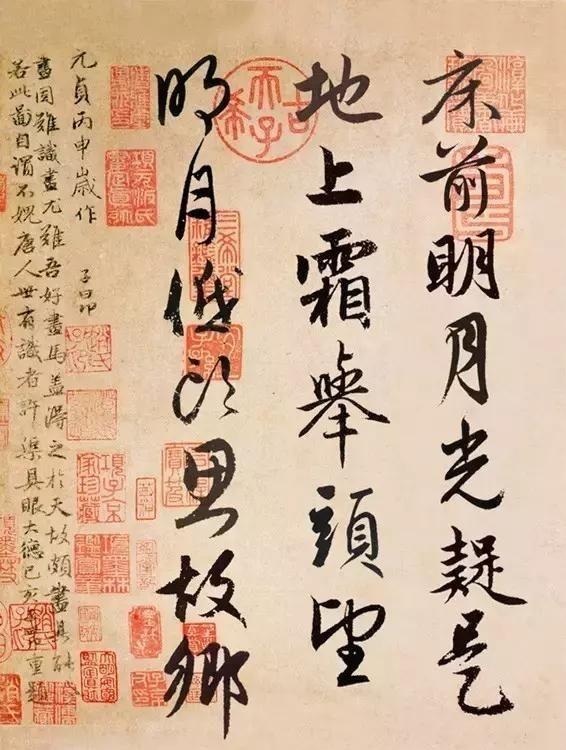 床前明月光疑是
地上霜舉頭望
明月低頭思故鄉
元貞丙申歲作 子昂
畫固難識畫尤難吾好畫馬蓋得之於天故頗盡其能
若此圖自謂不愧唐人世有識者許渠具眼大德己亥子昂重題
古希天子
項子京家珍藏